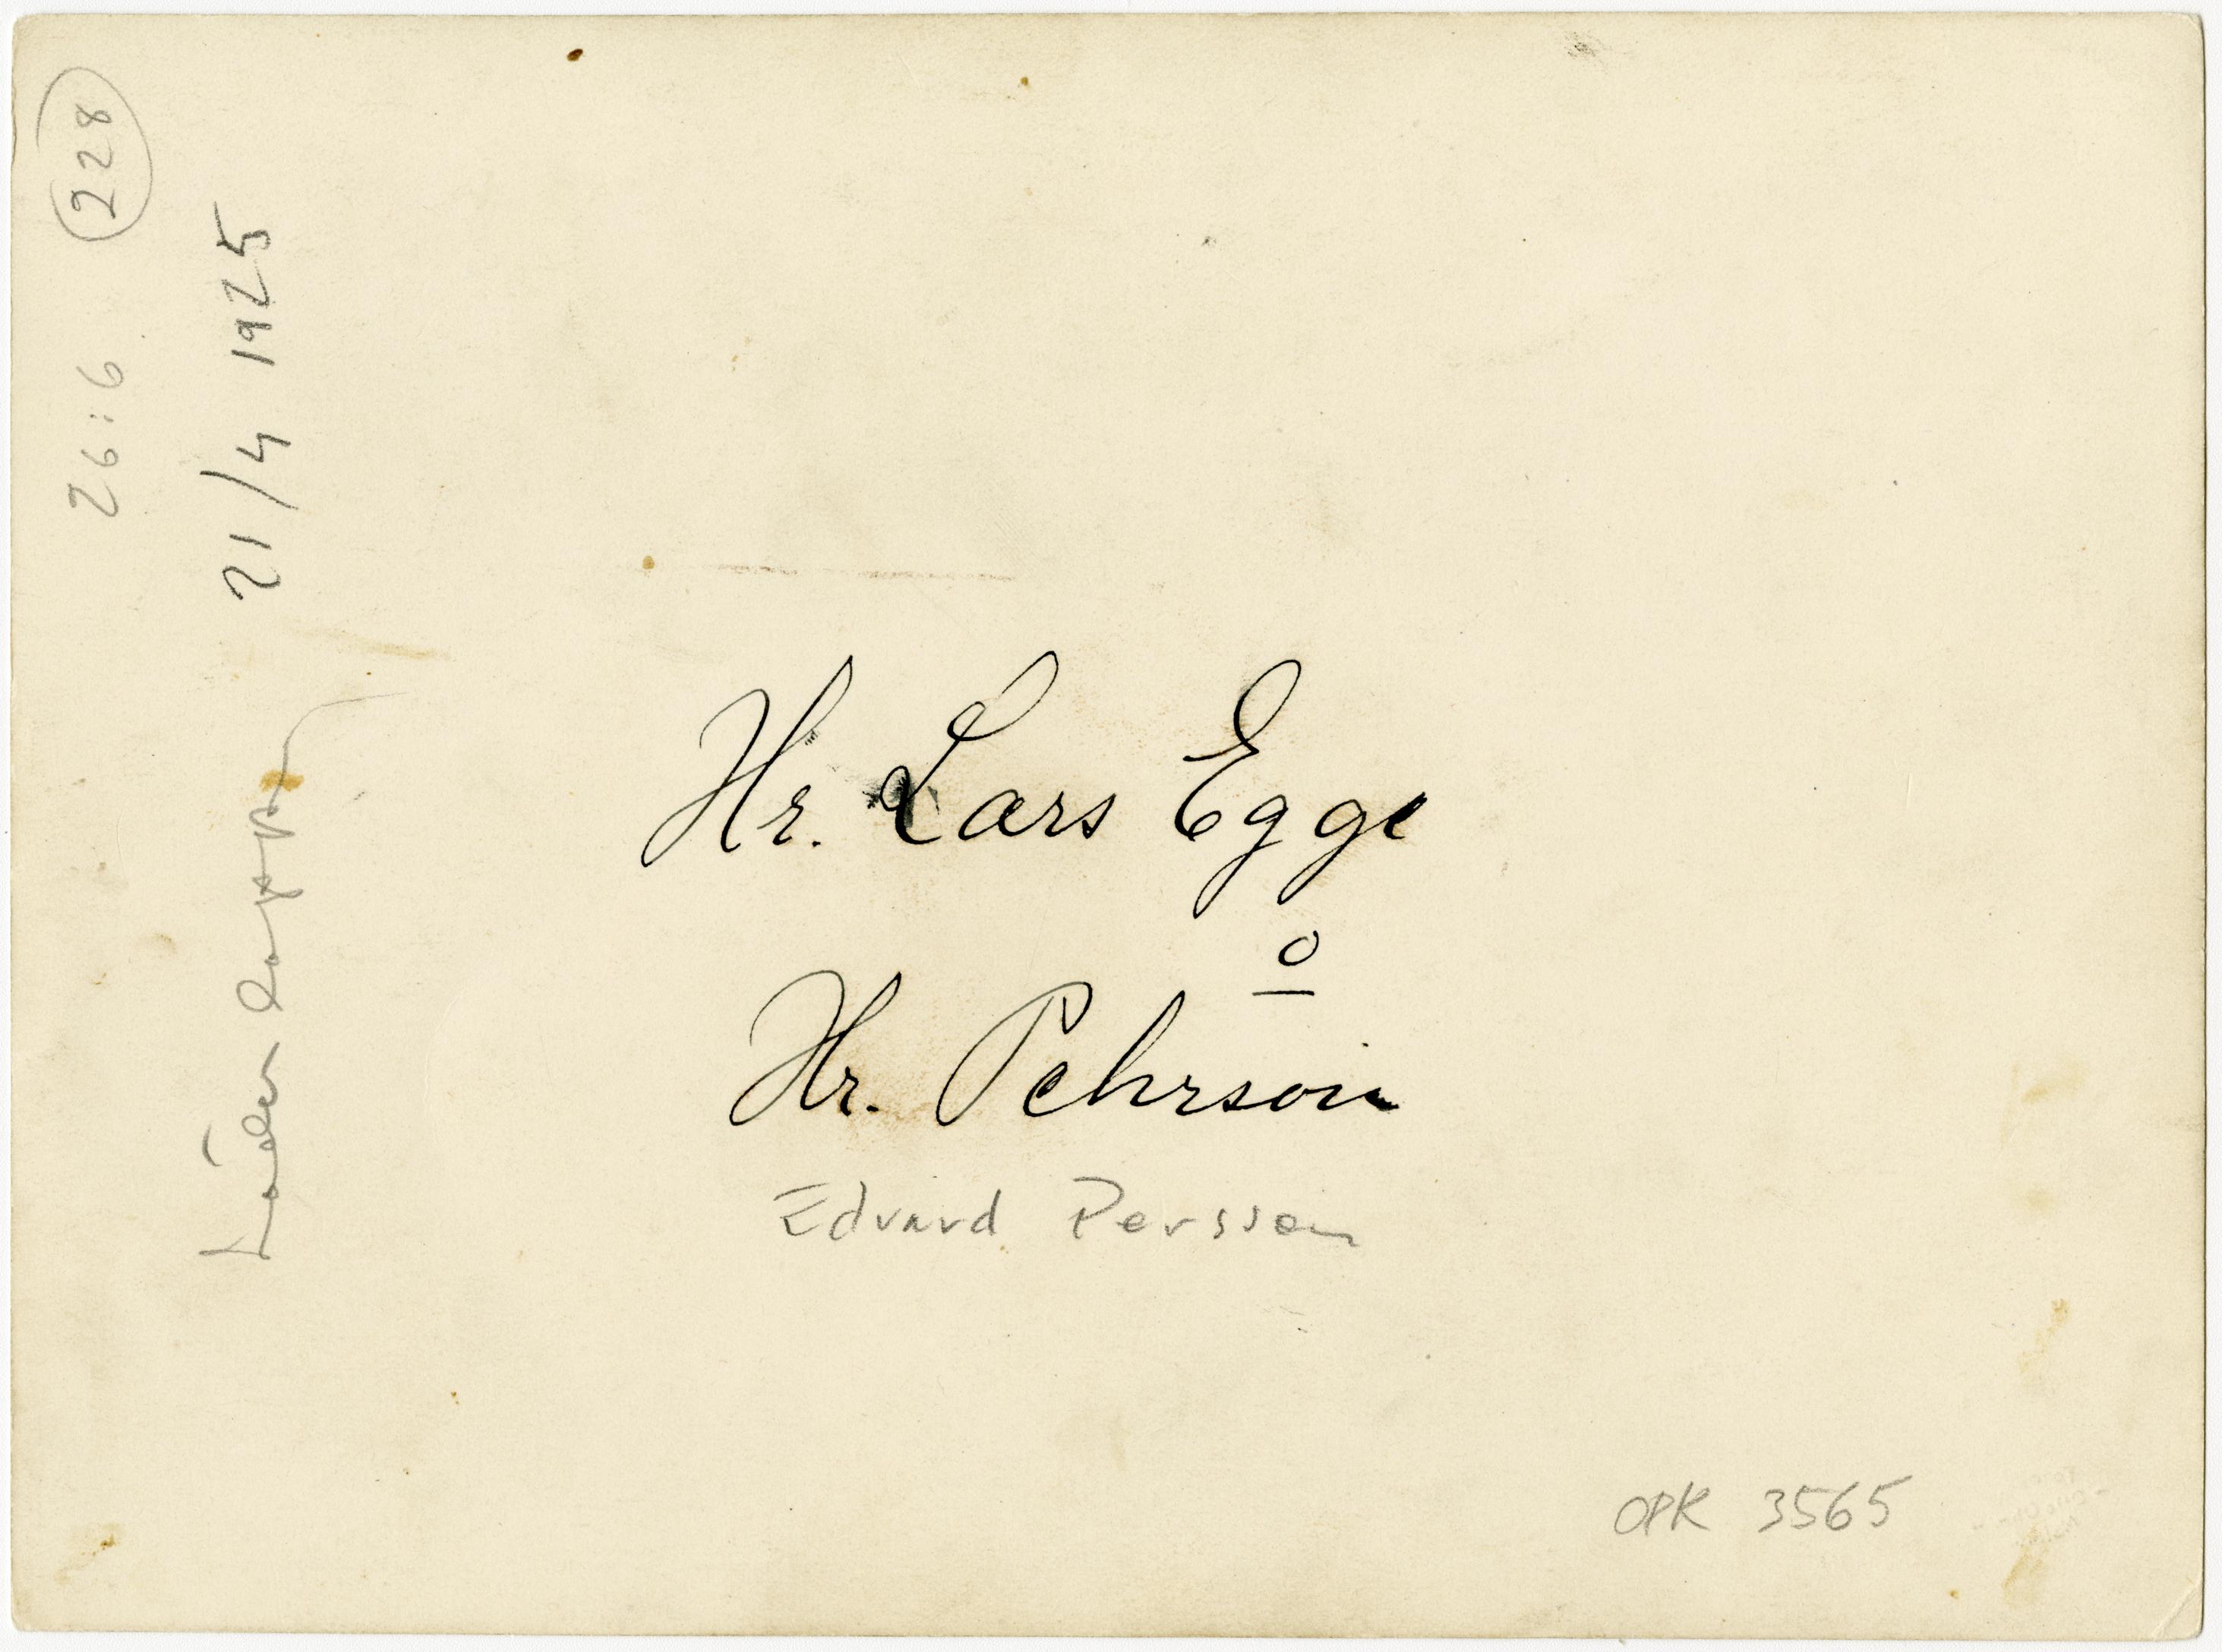 228
26:6
21/4 1925
Hr. Lars Egge
o
Hr. Pehrson
Edvard Persson
OPK 3565